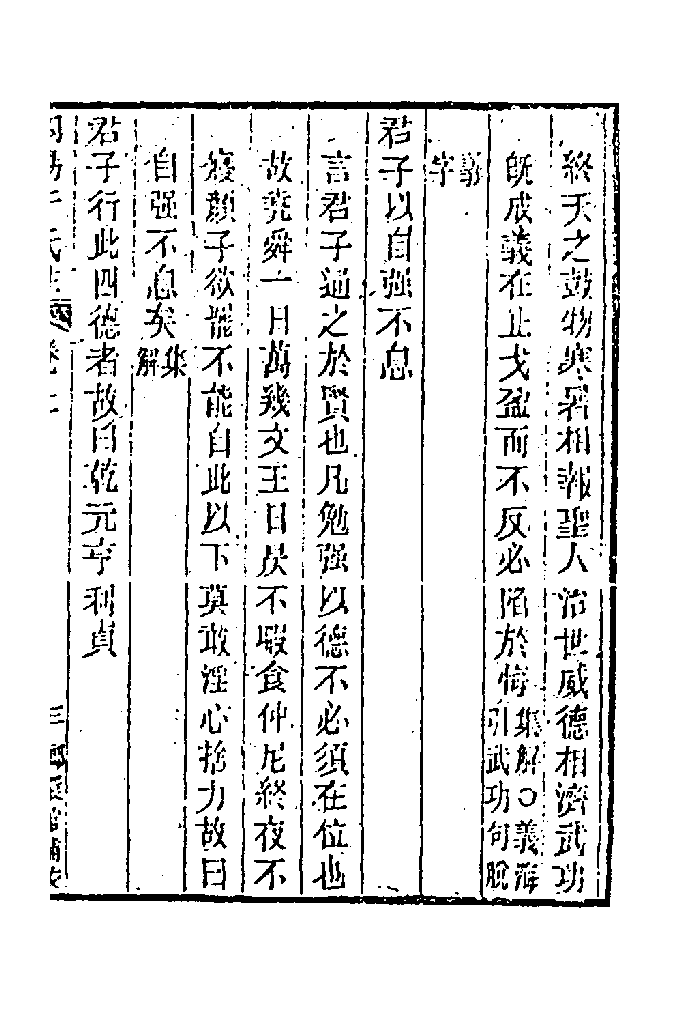 終天之鼓物寒暑相報聖人治世威德相濟武功
旣成義在止戈盈而不反必陷於悔集解○義海引武功句脫
義字
君子以自强不息
言君子通之於賢也凡勉强以德不必須在位也
故堯舜一日萬幾文王日昃不暇食仲尼終夜不
寢顏子欲罷不能自此以下莫敢淫心捨力故曰
自强不息矣集解
君子行此四德者故曰乾元亨利貞
三